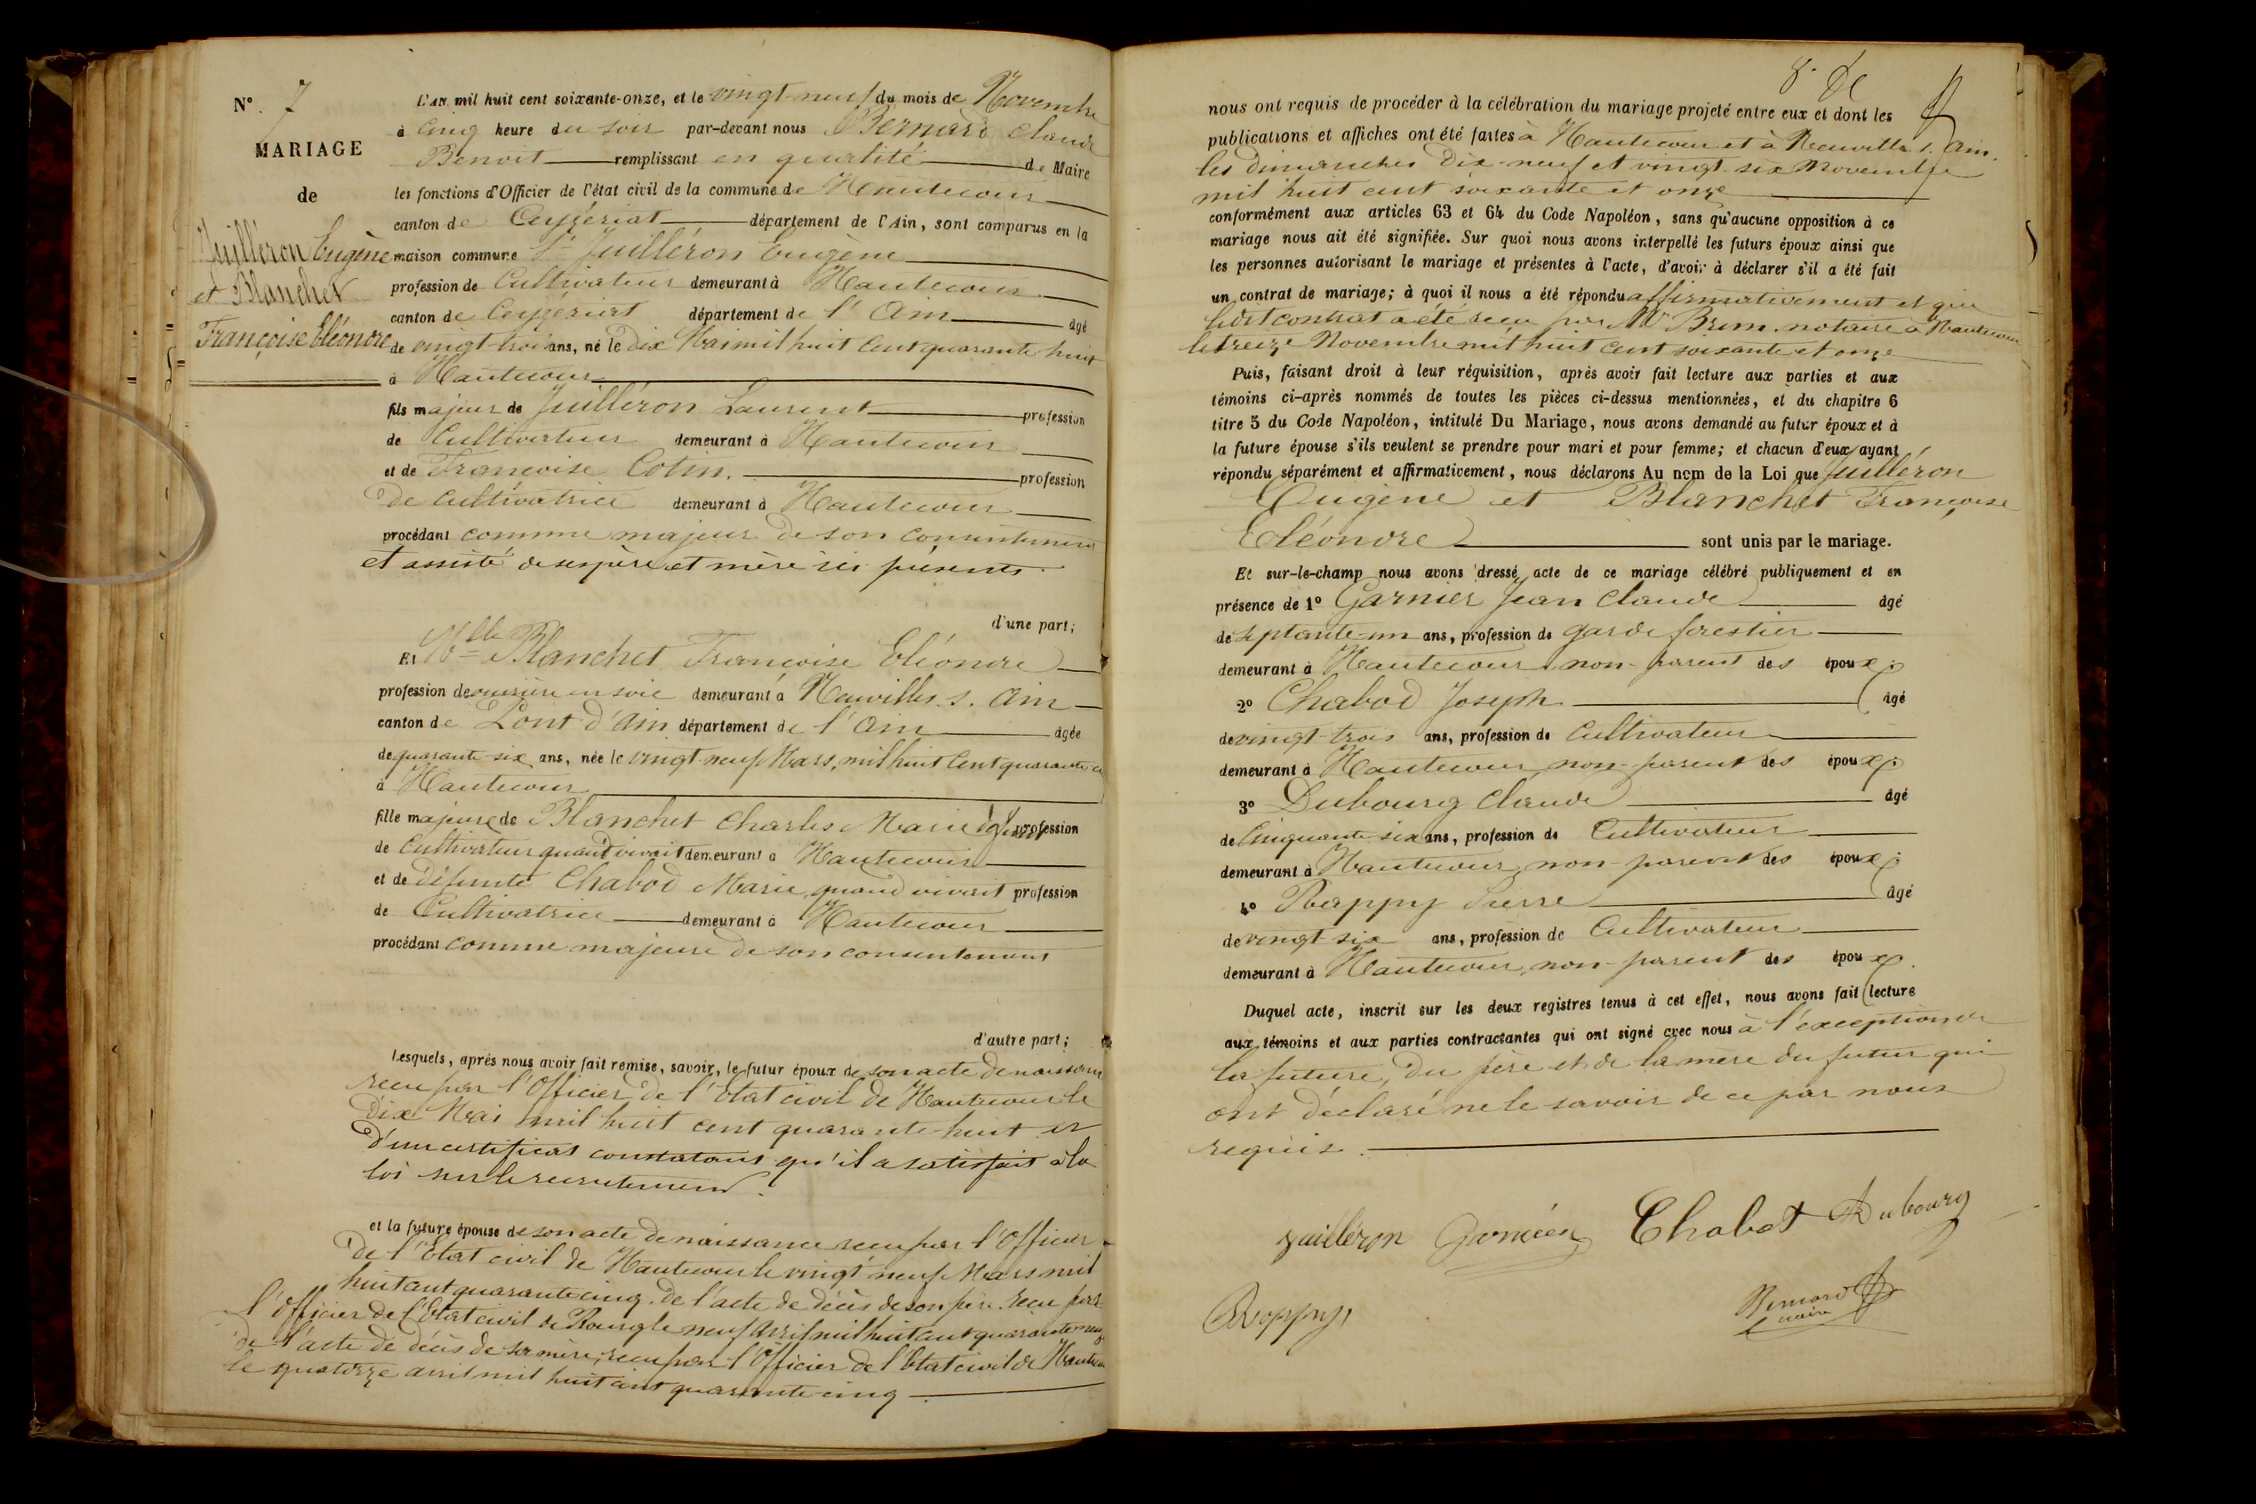 N° 7
MARIAGE
de
Juilléron Eugène
et Blanchet
Françoise Eléonore
L'an mil huit cent soixante-onze, et le vingt-neuf du mois de Novembre
à cinq heure du soir par-devant nous Bernard Claude
Benoit remplissant en qualité de Maire
les fonctions d'Officier de l'état civil de la commune de Hautecour
canton de Ceyzériat département de l'Ain, sont comparus en la
maison commune Sr Juilléron Eugène
profession de Cultivateur demeurant à Hautecour
canton de Ceyzériat département de l'Ain âgé
de vingt-trois ans, né le dix Mai mil huit cent quarante huit
à Hautecour
fils majeur de Juilléron Laurent profession
de Cultivateur demeurant à Hautecour
et de Françoise Cotin profession
de cultivatrice demeurant à Hautecour
procédant comme majeur de son consentement
et assisté de ses père et mère ici présents
d'une part;
Et Mlle Blanchet Françoise Eléonore
profession de ouvrière en soie demeurant à Neuville s. Ain
canton de Pont d'Ain département de l'Ain âgée
de quarante-six ans, née le vingt-neuf Mars, mil huit cent quarante
à Hautecour
fille majeure de Blanchet Charles Marie défunt profession
de Cultivateur quand vivait demeurant à Hautecour
et de défunte Chabod Marie, quand vivait profession
de Cultivatrice demeurant à Hautecour
procédant comme majeure de son consentement
d'autre part;
Lesquels, après nous avoir fait remise, savoir, le futur époux de son acte de naissance
recu par l'Officier de l'Etat civil de Hautecour le
dix Mai mil huit cent quarante-huit et
d'un certificat constatant qu'il a satisfait à la
loi sur le recrutement.
et la future épouse de son acte de naissance recu par l'Officier
de l'Etat civil de Hautecour le vingt neuf Mars mil
huit cent quarante cinq. de l'acte de décès de son père recu par
l'Officier de l'Etat civil de neuf avril mil huit cent quarante
de l'acte de décès de sa mère, recu par l'Officier de l'Etat civil de Hautecour
le quatorze avril mil huit cent quarante cinq
nous ont requis de procéder à la célébration du mariage projeté entre eux et dont les
publications et affiches ont été faites à Hautecour et à Neuville s. Ain.
les dimanches dix-neuf et vingt-six Novembre
mil huit cent soixante et onze
conformément aux articles 63 et 64 du Code Napoléon, sans qu'aucune opposition à ce
mariage nous ait été signifiée. Sur quoi nous avons interpellé les futurs époux ainsi que
les personnes autorisant le mariage et présentes à l'acte, d'avoir à déclarer s'il a été fait
un contrat de mariage; à quoi il nous a été répondu affirmativement et que
ledit contrat a été recu par Me Brun notaire à Hautecour
le treize Novembre mil huit cent soixante et onze
Puis, faisant droit à leur réquisition, après avoir fait lecture aux parties et aux
témoins ci-après nommés de toutes les pièces ci-dessus mentionnées, et du chapitre 6
titre 5 du Code Napoléon, intitulé Du Mariage, nous avons demandé au futur époux et à
la future épouse s'ils veulent se prendre pour mari et pour femme; et chacun d'eux ayant
répondu séparément et affirmativement, nous déclarons Au nom de la Loi que Juilléron
Eugène et Blanchet Françoise
Eléonore sont unis par le mariage.
Et sur-le-champ nous avons dressé acte de ce mariage célébré publiquement et en
présence de 1° Garnier Jean Claude âgé
de septante-un ans, profession de garde forestier
demeurant à Hautecour non-parent des époux;
2° Chabod Joseph âgé
de vingt-trois ans, profession de Cultivateur
demeurant à Hautecour non-parent des époux;
3° Dubourg Claude âgé
de cinquante-six ans, profession de Cultivateur
demeurant à Hautecour non-parent des époux;
4° Rappy Pierre âgé
de vingt-six ans, profession de Cultivateur
demeurant à Hautecour, non-parent des époux.
Duquel acte, inscrit sur les deux registres tenus à cet effet, nous avons fait lecture
aux témoins et aux parties contractantes qui ont signé avec nous à l'exception de
la future, du père et de la mère du futur qui
ont déclaré ne le savoir de ce par nous
requis.
Juilléron Chabot Dubourg
Rappy Bernard
maire